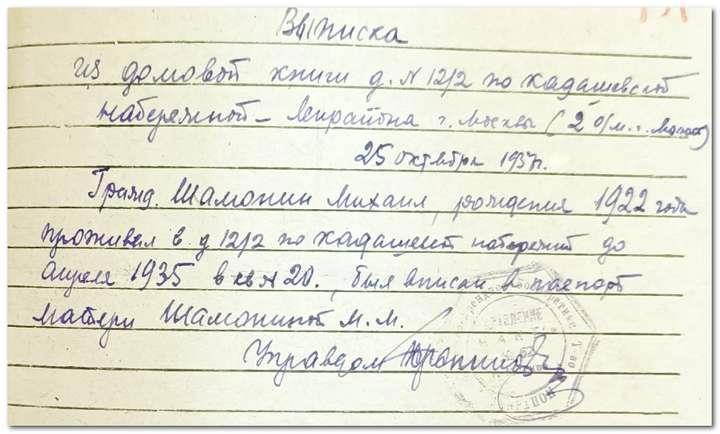 Выписка
из домовой книги д. N 12/2 по Кадашевской
набережной - Ленрайона г. Москвы (2 о/м. г. Москвы)
25 октября 1937г.
Гражд. Шамонин Михаил, рождения 1922 года
проживал в д 12/2 по Кадашевск набережной до
апреля 1935 в кв № 20., был вписан в паспорт
матери Шамониной М. М.
Управдом